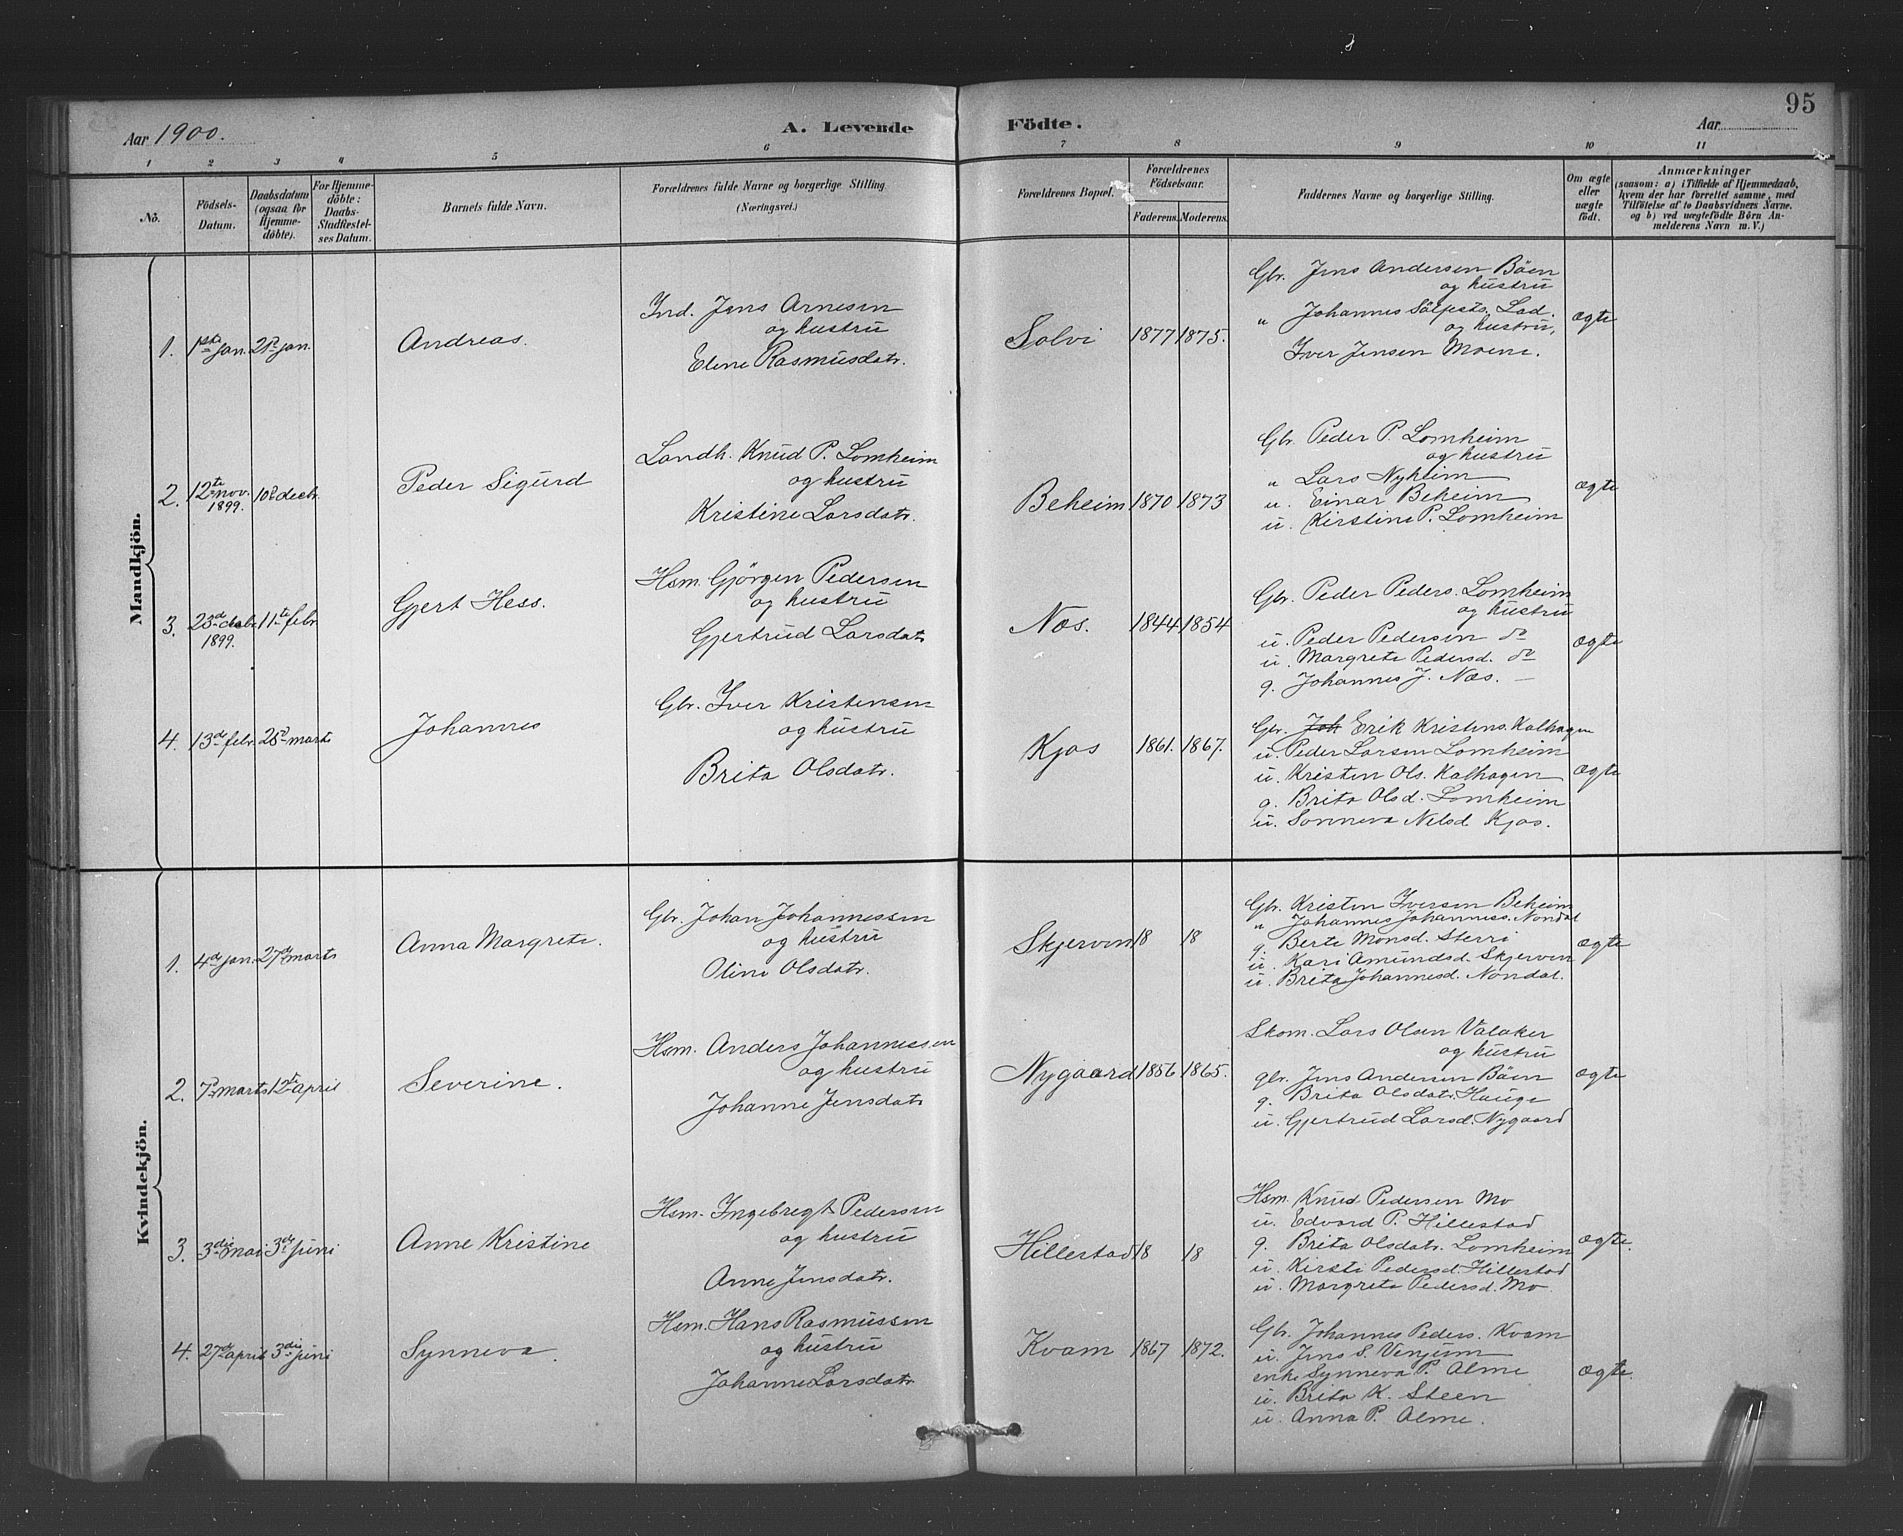 95
Aar 1900.
A. Levende
Födte.
Aar
1 2 3 4 5 6 7 8 9 10 11
No.
Födsels-
Datum.
Daabsdatum
(ogsaa for
Hjemme-
döbte).
For Hjemme-
döbte:
Daabs-
Stadfestel-
ses Datum.
Barnets fulde Navn.
Forældrenes fulde Navne og borgerlige Stilling
(Næringsvei.)
Forældrenes Bopæl.
Forældrenes
Födselsaar.
Faderens. Moderens.
Faddernes Navne og borgerlige Stilling.
Om ægte
eller
uægte
födt.
Anmærkninger
(saasom: a) i Tilfælde af Hjemmedaab,
hvem der har forrettet samme, med
Tilföielse af to Daabsvidners Navne.
og b) ved uægtefödte Börn An-
melderens Navn m. V.)
Mandkjön.
1. 1ste jan. 21d jan.
Andreas.
Ind. Jens Arnesen
og hustru
Eline Rasmusdatr.
Solvi
1877 1875.
Gbr. Jens Andersen Böen
og hustru
" Johannes Lad.
og hustru,
Iver Jensen Moene.
ægte
2. 12te nov.
1899.
10de decbr.
Peder Sigurd
Landh. Knud P. Lomheim
og hustru
Kristine Larsdatr.
Beheim
1870 1873
Gbr. Peder P. Lomheim
og hustru
" Lars Nyheim
u. Einar Beheim
u. Kirstine P. Lomheim
ægte
3. 23de decbr.
1899.
11te febr.
Gjert Hess.
Hsm. Gjörgen Pedersen
og hustru
Gjertrud Larsdatr
Næs.
1844 1854
Gbr. Peder Peders. Lomheim
og hustru
u. Peder Pedersen do
u. Margrete Pedersd. do
g. Johannes J. Næs. —
ægte
4. 13de febr. 25de marts
Johannes
Gbr. Iver Kristensen
og hustru
Brita Olsdatr.
Kjos
1861. 1867.
Gbr. Joh Erik Kristens. Kalhagen
u. Peder Larsen Lomheim
u. Kristen Ols. Kalhagen
g. Brita Olsd. Lomheim
u. Sonneva Nelsd Kjos.
ægte
Kvindekjön.
1. 4de jan. 27de marts
Anna Margrete.
Gbr. Johan Johannessen
og hustru
Oline Olsdatr.
Skjerven
18 18
Gbr. Kristen Iversen Beheim
" Johannes Johanness. Nondal
g. Berte Monsd. Sterri
u. Kari Amundsd. Skjerven
u. Brita Johannesd. Nondal.
ægte
2. 7de marts 12te april
Severine.
Hsm. Anders Johannessen
og hustru
Johanne Jensdatr
Nygaard
1856 1865.
Skom. Lars Olsen Valaker
og hustru
gbr. Jens Andersen Böen
g. Brita Olsdatr. Hauge
u. Gjertrud Larsd. Nygaard
ægte
3. 3die mai 3die juni
Anne Kristine
Hsm. Ingebregt Pedersen
og hustru
Anne Jensdatr.
Hillestad
18 18
Hsm. Knud Pedersen Mo
u. Edvard P. Hillestad
g. Brita Olsdatr. Lomheim
u. Kirsti Pedersd. Hillestad
u. Margreta Pedersd. Mo
ægte.
4. 27de april 3die juni
Synneva.
Hsm. Hans Rasmussen
og hustru
Johanne Larsdatr
Kvam
1867 1872.
Gbr. Johannes Peders. Kvam
u. Jens S. Venjum
enke Synneva P. Alme
u. Brita K. Steen
u. Anna P. Alme.
ægte.